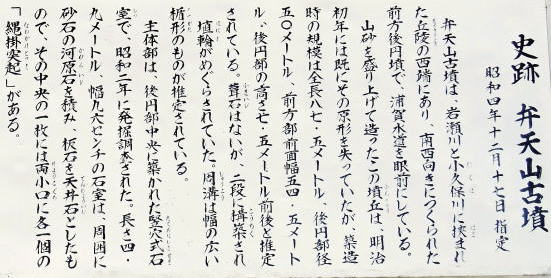 史跡 弁天山古墳
昭和四年十二月十七日 指定
弁天山古墳は、岩瀬川と小久保川に挟まれ
た丘陵の西端にあり、南西向きにつくられた
前方後円墳で、浦賀水道を眼前にしている。
山砂を盛り上げて造ったこの墳丘は、明治
初年には既にその原形を失っていたが、築造
時の規模は全長八七・五メートル、後円部径
五〇メートル、前方部前面幅五四・五メート
ル、後円部の高さ七・五メートル前後と推定
されている。葺石はないが、二段に構築され
埴輪がめぐらされていた。周溝は幅の広い
楯形のものが推定されている。
主体部は、後円部中央に築かれた竪穴式石
室で、昭和二年に発掘調査された。長さ四・
九メートル、幅九六センチの石室は、周囲に
砂石の河原石を積み、板石を天井石としたも
ので、その中央の一枚には両小口に各一個の
「縄掛突起」がある。